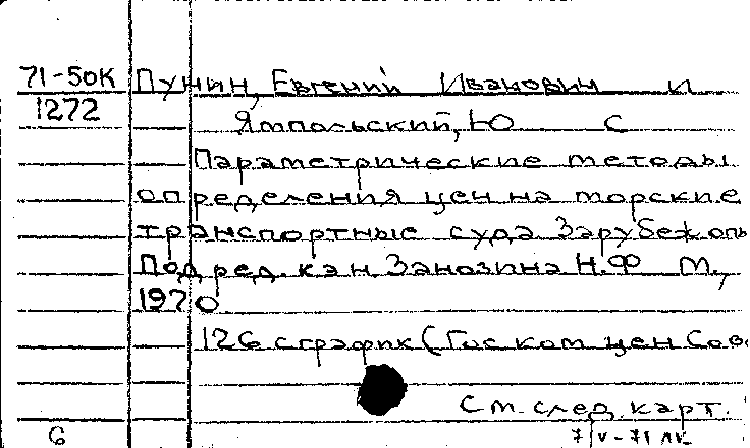 71-50К Пунин, Евгений Иванович и
1272
Ямпольский, Ю С
Параметрические методы
определения цен на морские
транспортные суда Зарубеж опы
Под ред. к э н Занозина Н.Ф М.,
1970
126 с график (Гос ком цен Сов
См. след. карт.
6 7/V-71 ЛК